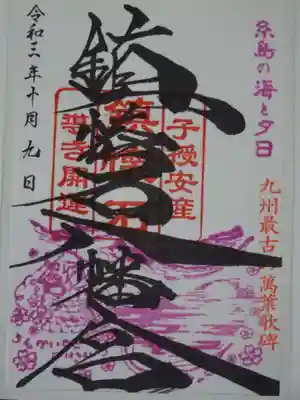 糸島の海と夕日
九州最古 萬葉歌碑
子授安産
鎮懐石
導き開運
鎮懐石八幡宮
令和三年十月九日